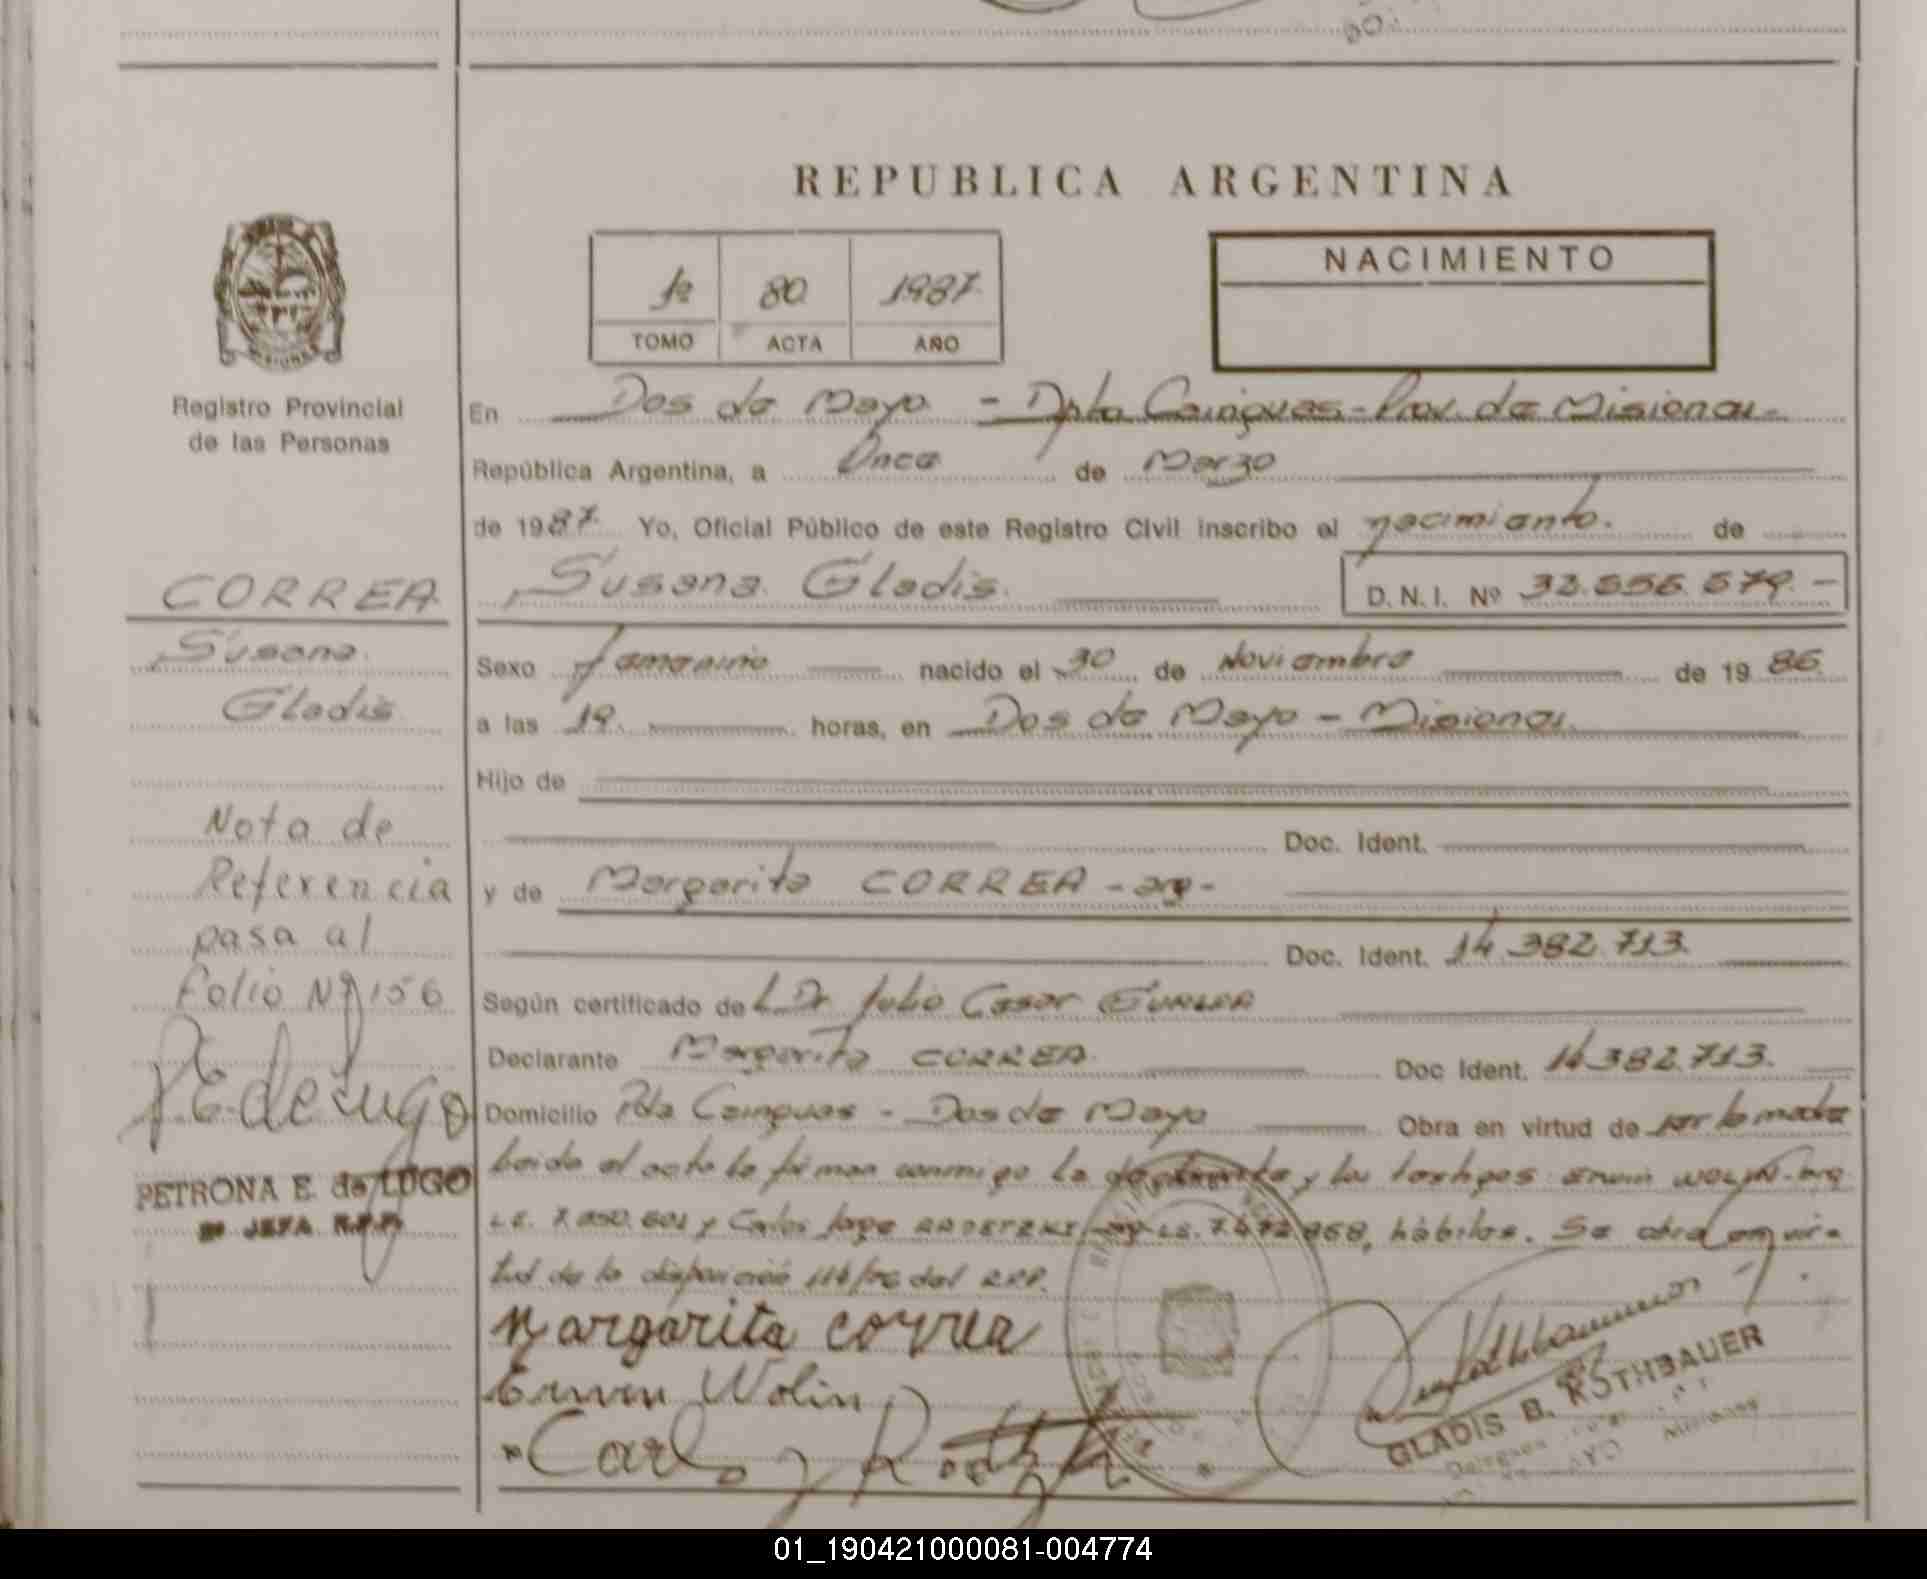 REPUBLICA ARGENTINA
1º 80 1987
TOMO ACTA AÑO
NACIMIENTO
Registro Provincial
de las Personas
En Dos de Mayo - Dpto Cainguas - Prov. de Misiones -
República Argentina, a Once de Marzo
de 1987. Yo, Oficial Público de este Registro Civil inscribo el nacimiento. de
Susana Gladis. D.N.I. Nº
Sexo femenino nacido el 30 de Noviembre de 19 86
a las 19. horas, en Dos de Mayo - Misiones.
Hijo de
Doc. Ident.
y de Margarita CORREA - arg -
Doc. Ident. 14.382.713.
Según certificado de L Dr. Julio Cesar
Declarante Margarita CORREA. Doc Ident. 14.382.713.
Domicilio Pda Cainguas - Dos de Mayo Obra en virtud de ser la madre
Leida el acta la firman conmigo la declarante y los testigos Erwin WOLIN - arg
L.E. y Carlos Jorge arg L.E. hábiles. Se obra en vir-
tud de la disposición del R.P.P.
Margarita Correa
Erwin Wolin
Carlos J
GLADIS B. ROTHBAUER
CORREA
Susana
Gladis
Nota de
Referencia
pasa al
Folio Nº 156
PEdeLugo
PETRONA E. de LUGO
JEFA R.P.P.
01_190421000081-004774